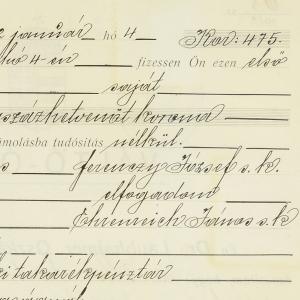 január hó 4 Kor: 475.
hó 4 én fizessen Ön ezen első
saját
százhetvenöt korona
zámolásba tudósitás nélkül.
s Ferenczy József s. k.
elfogadom
Ehrenreich János s. k.
ki takarékpénztár